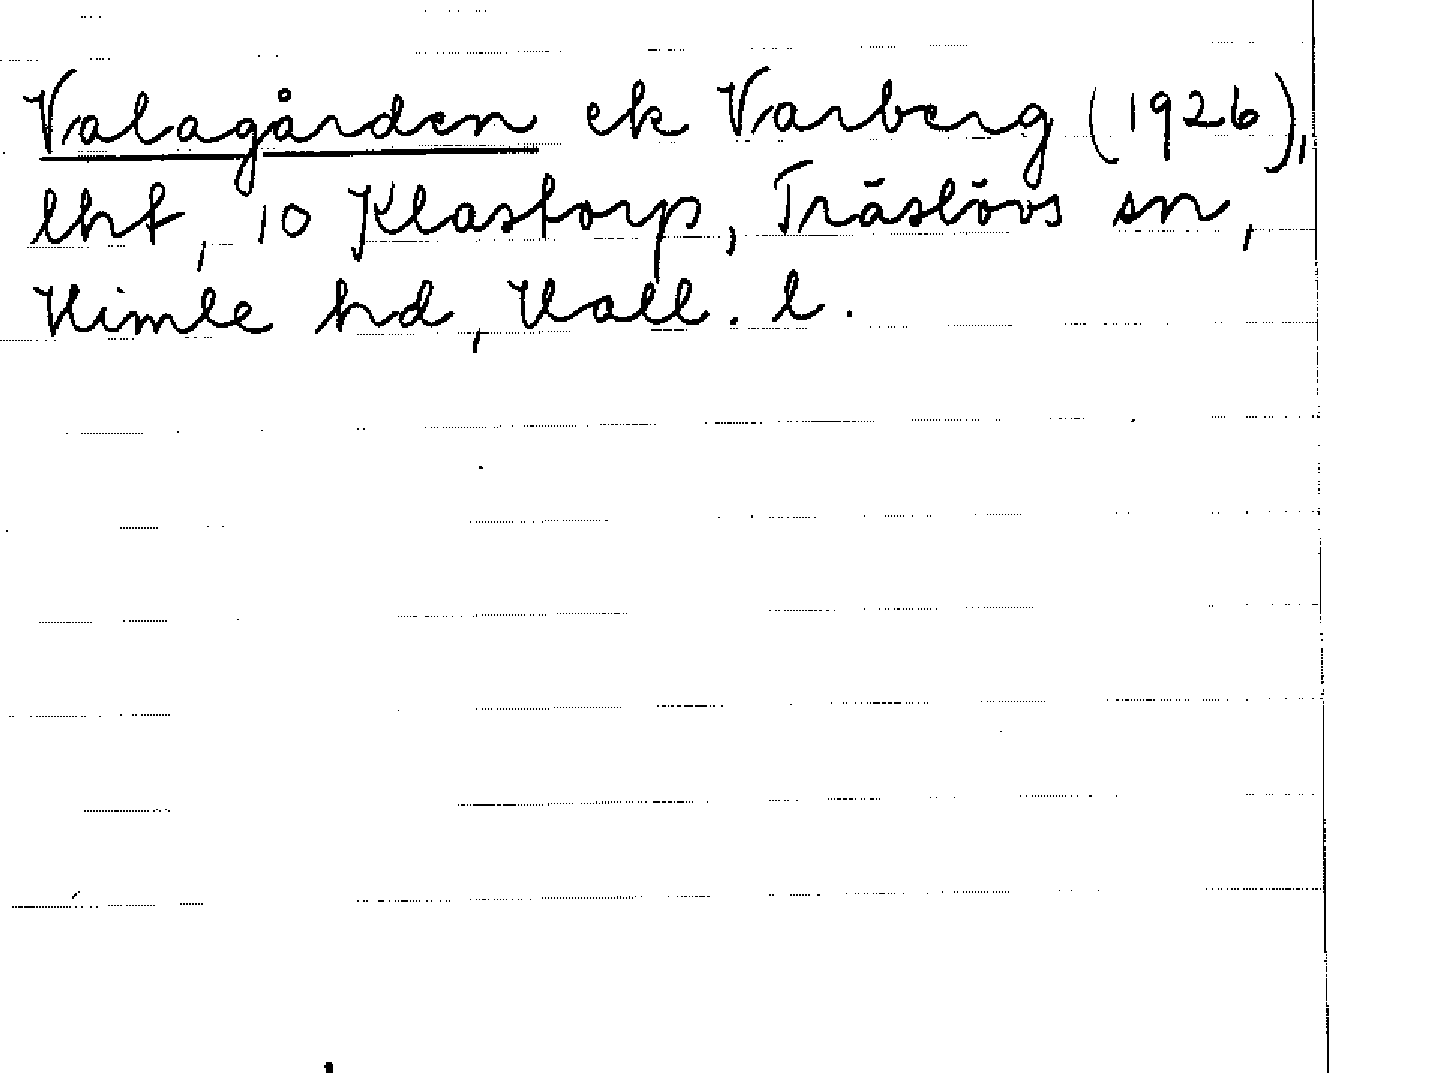 Valagården ek Varberg (1926),
lht, 10 Klastorp, Träslövs sn,
Himle hd, Hall. l.